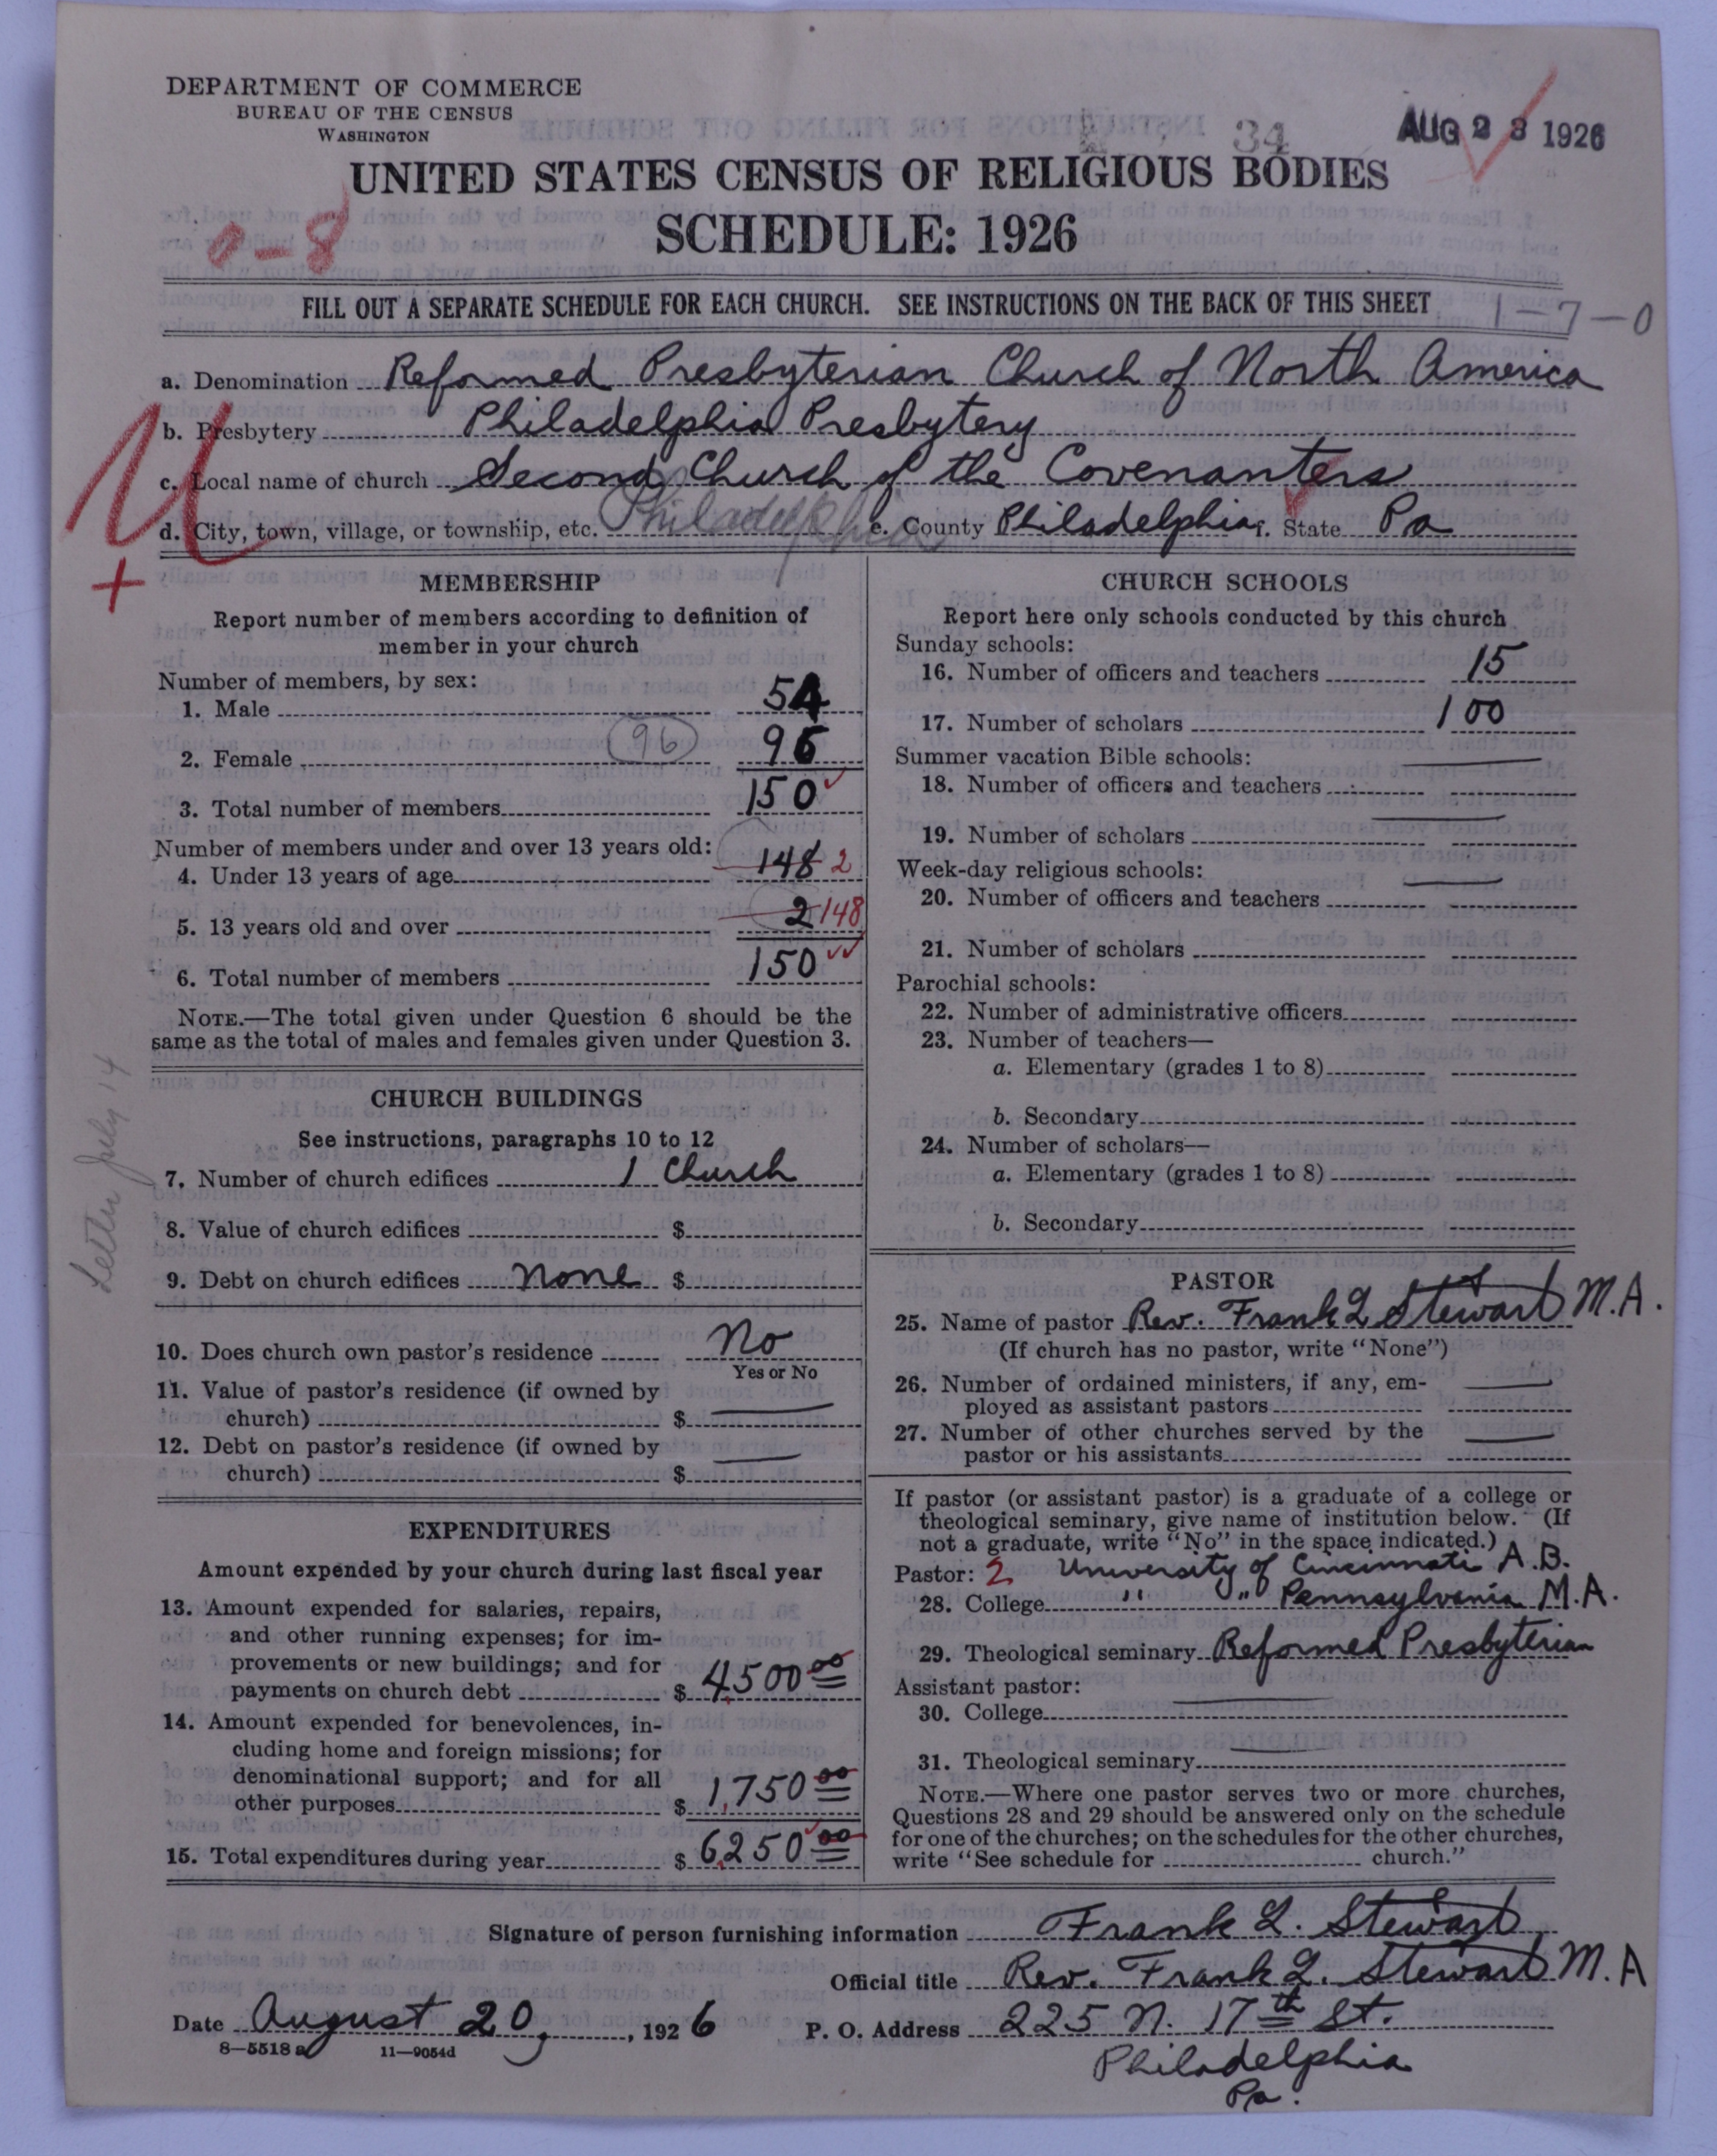 DEPARTMENT OF COMMERCE
BUREAU OF THE CENSUS
WASHINGTON
34
AUG 23 1926
UNITED STATES CENSUS OF RELIGIOUS BODIES
SCHEDULE: 1926
0-8
FILL OUT A SEPARATE SCHEDULE FOR EACH CHURCH. SEE INSTRUCTIONS ON THE BACK OF THIS SHEET
1-7-0
a. Denomination Reformed Presbyterian Church of North America
b. Presbytery Philadelphia Presbytery
c. Local name of church Second Church of the Covenanters
d. City, town, village, or township, etc. Philadelphia e. County Philadelphia f. State Pa
MEMBERSHIP
Report number of members according to definition of
member in your church
Number of members, by sex:
1. Male 54
2. Female (96) 96
3. Total number of members 150
Number of members under and over 13 years old:
4. Under 13 years of age 148 2
5. 13 years old and over 2 148
6. Total number of members 150
NOTE.—The total given under Question 6 should be the
same as the total of males and females given under Question 3.
Letter July 14
CHURCH BUILDINGS
See instructions, paragraphs 10 to 12
7. Number of church edifices 1 Church
8. Value of church edifices $
9. Debt on church edifices none $
10. Does church own pastor's residence No
Yes or No
11. Value of pastor's residence (if owned by
church) $
12. Debt on pastor's residence (if owned by
church) $
EXPENDITURES
Amount expended by your church during last fiscal year
13. Amount expended for salaries, repairs,
and other running expenses; for im-
provements or new buildings; and for
payments on church debt $ 4,500 00
14. Amount expended for benevolences, in-
cluding home and foreign missions; for
denominational support; and for all
other purposes $ 1,750 00
15. Total expenditures during year $ 6,250 00
CHURCH SCHOOLS
Report here only schools conducted by this church
Sunday schools:
16. Number of officers and teachers 15
17. Number of scholars 100
Summer vacation Bible schools:
18. Number of officers and teachers
19. Number of scholars
Week-day religious schools:
20. Number of officers and teachers
21. Number of scholars
Parochial schools:
22. Number of administrative officers
23. Number of teachers—
a. Elementary (grades 1 to 8)
b. Secondary
24. Number of scholars—
a. Elementary (grades 1 to 8)
b. Secondary
PASTOR
25. Name of pastor Rev. Frank L Stewart M.A.
(If church has no pastor, write "None")
26. Number of ordained ministers, if any, em-
ployed as assistant pastors
27. Number of other churches served by the
pastor or his assistants
If pastor (or assistant pastor) is a graduate of a college or
theological seminary, give name of institution below. (If
not a graduate, write "No" in the space indicated.)
Pastor: 2 University of Cincinnati A.B.
28. College " " Pennsylvania M.A.
29. Theological seminary Reformed Presbyterian
Assistant pastor:
30. College
31. Theological seminary
NOTE.—Where one pastor serves two or more churches,
Questions 28 and 29 should be answered only on the schedule
for one of the churches; on the schedules for the other churches,
write "See schedule for church."
Signature of person furnishing information Frank L. Stewart
Official title Rev. Frank L. Stewart M.A
Date August 20, 1926 P. O. Address 225 N. 17th St.
8—5518a 11—9054d
Philadelphia
Pa.